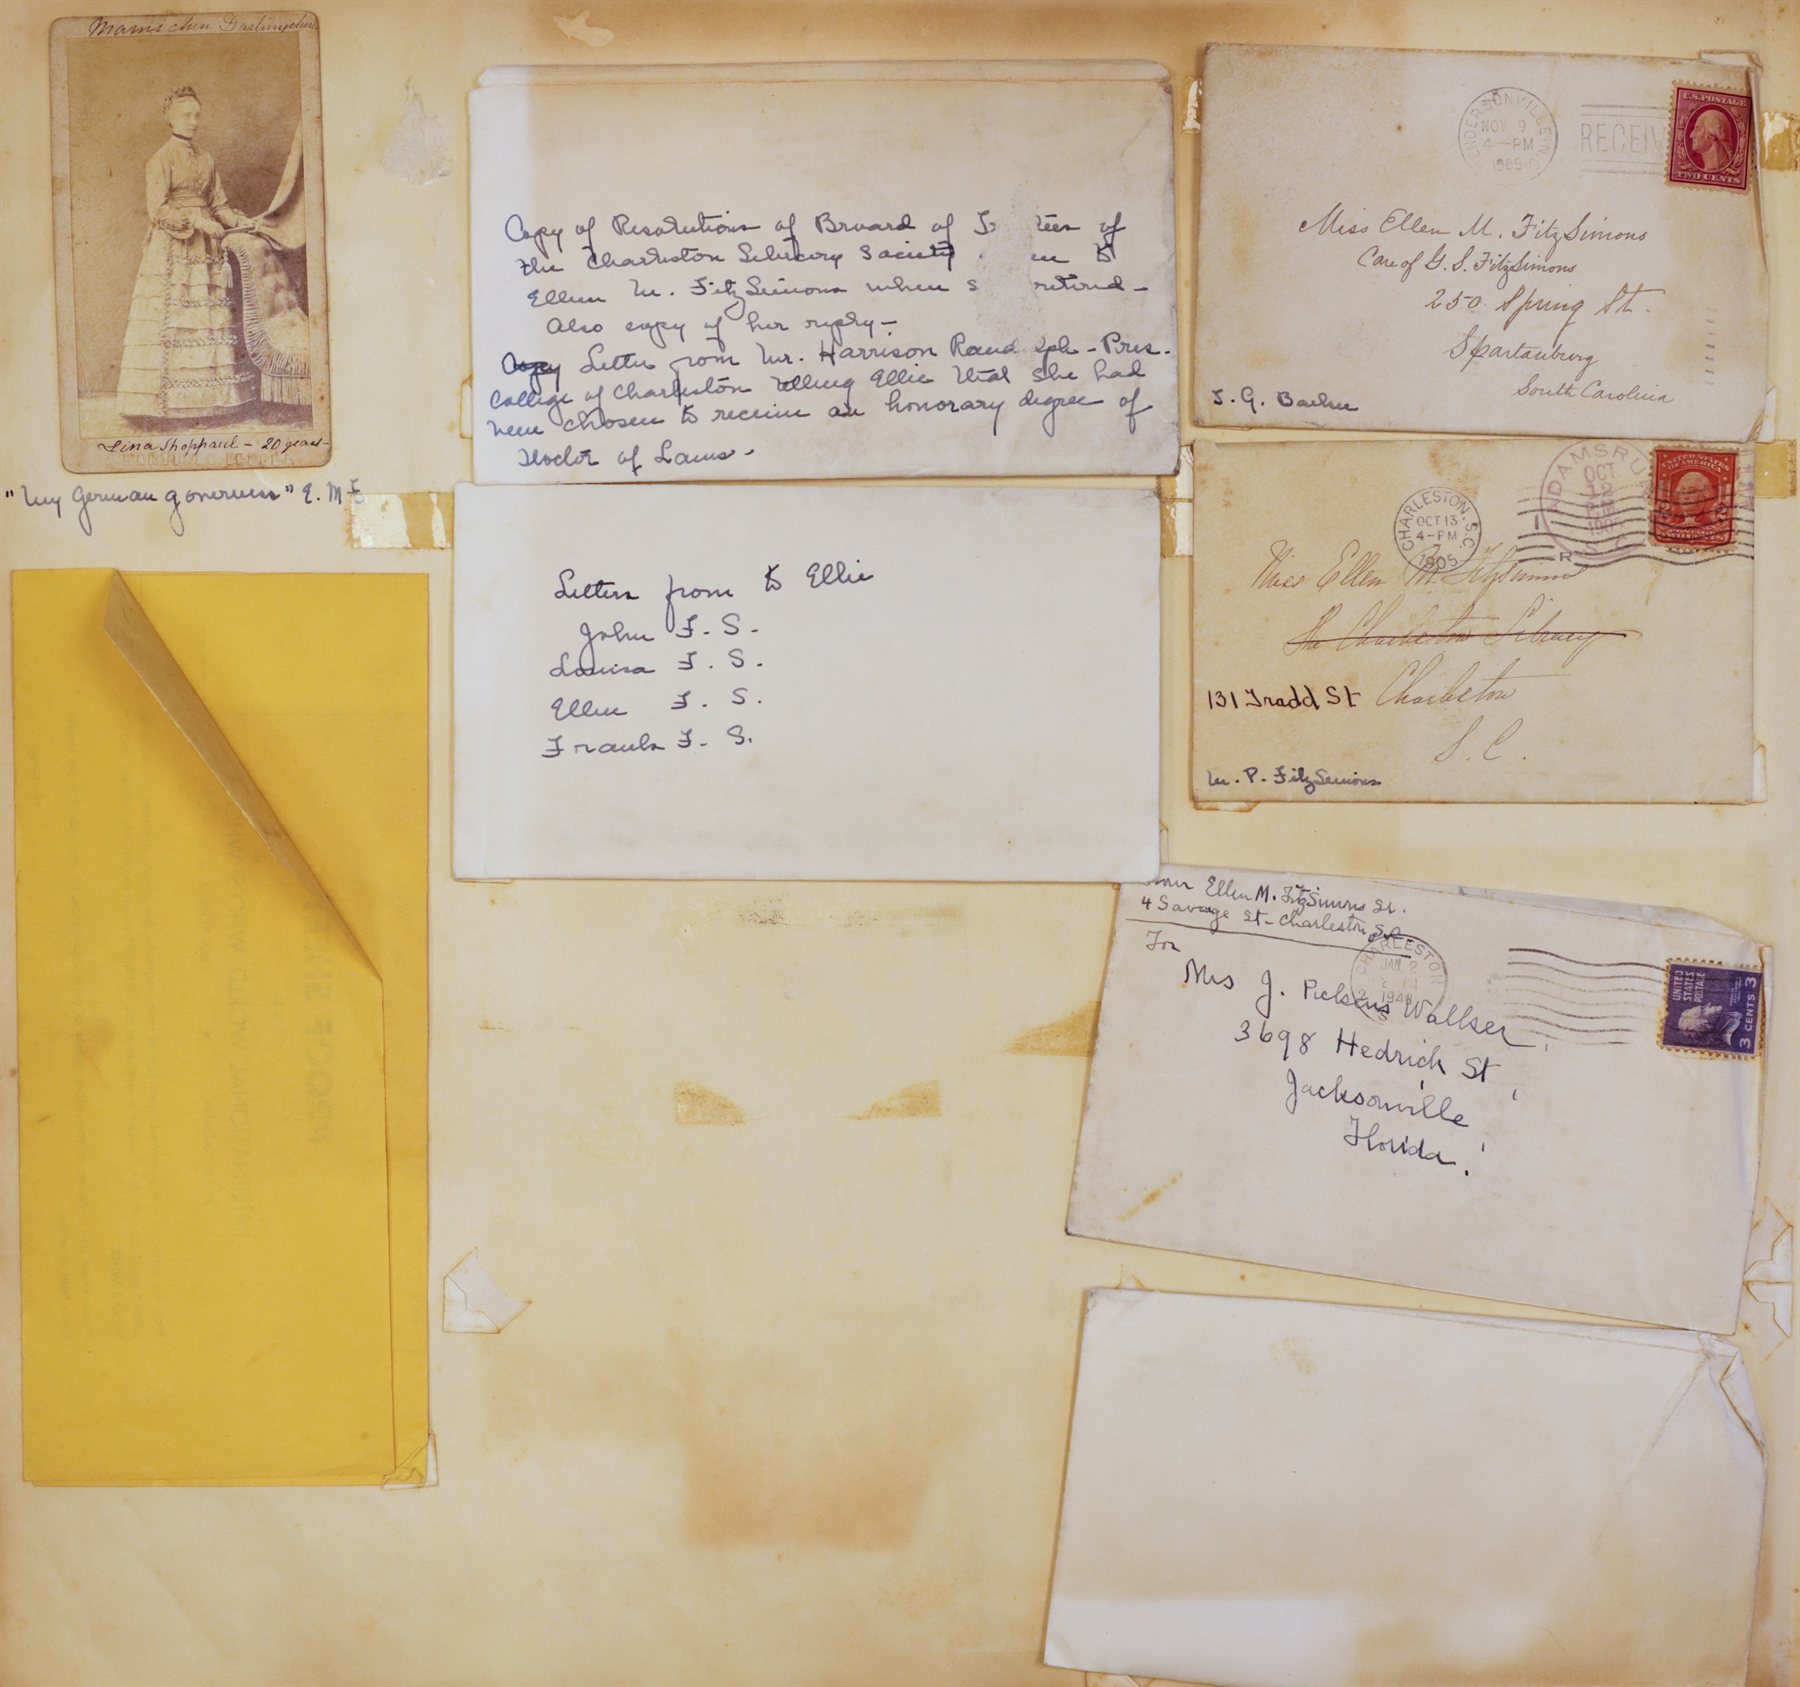 Lina Shoppaul - 20 years -
"My German governess" E. M F
Copy of Resolutions of Broard of T tees of
the Charleston Library Society en to
Ellen M. FitzSimons when s retired -
Also copy of her reply -
Letter from Mr. Harrison Rand olph - Pres.
College of Charleston telling Ellie that she had
been chosen to receive an honorary degree of
Doctor of Laws -
Letters from to Ellie
John F. S.
Louisa F. S.
Ellen F. S.
Frank F. S.
HENDERSONVILLE N
NOV 9
4-PM
1909
RECEIV
U.S. POSTAGE
TWO CENTS
Miss Ellen M. FitzSimons
Care of G. S. FitzSimons
250 Spring St.
Spartanburg
South Carolina
T. G. Barker
CHARLESTON, S.C.
OCT 13
4-PM
1905
ADAMSRU
OCT
12
1905
UNITED STATES
OF AMERICA
TWO CENTS
Miss Ellen M. FitzSimons
The Charleston Library
131 Tradd St Charleston
S. C.
M. P. FitzSimons
Ellen M. FitzSimons Sr.
4 Savage St - Charleston S.C.
For
CHARLESTON
JAN 2
PM
1948
UNITED
STATES
POSTAGE
3 CENTS 3
Mrs J. Pickens Walker,
3698 Hedrich St,
Jacksonville
Florida.